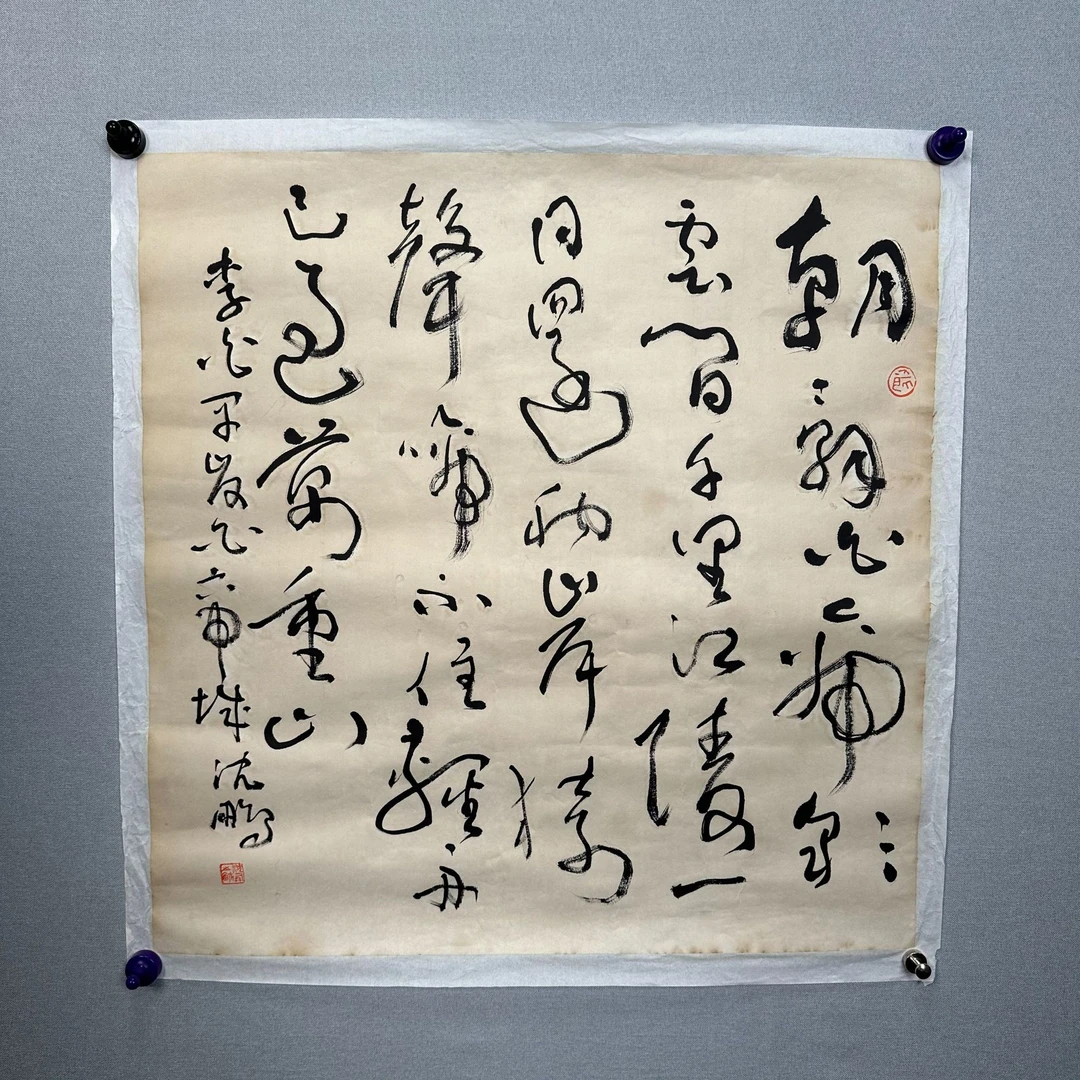 朝辭白帝彩
雲間千里江陵一
日還兩岸猿
聲啼不住輕舟
已過萬重山
李白早發白帝城 沈鵬